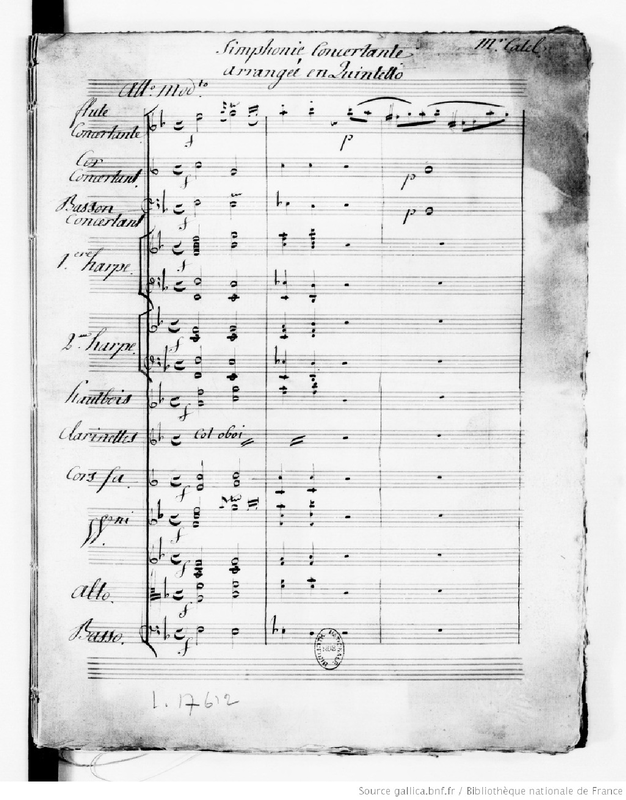 Simphonie Concertante
Mr. Catel.
arrangée en Quintetto
All.o Mod.to
flute
Concertante.
f
p
Cor
Concertant
f
p
Basson
Concertant
f
p
1.ere harpe.
f
2.me harpe.
f
hautbois
f
Clarinettes
Col oboi
Cors fa.
f
f
f
Alto.
f
Basso.
f
L. 17612
Source gallica.bnf.fr / Bibliothèque nationale de France